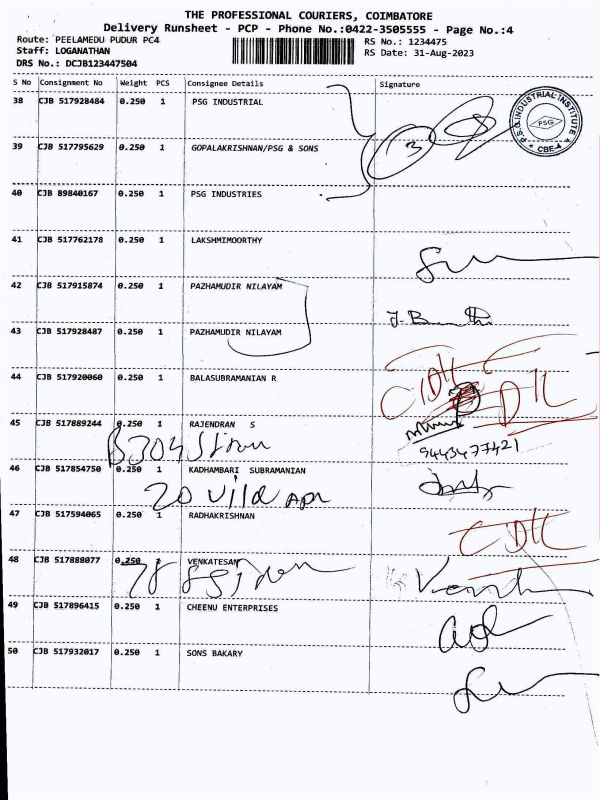 THE PROFESSIONAL COURIERS, COIMBATORE
Delivery Runsheet - PCP - Phone No.:0422-3505555 - Page No.:4
Route: PEELAMEDU PUDUR PC4
RS No.: 1234475
Staff: LOGANATHAN
RS Date: 31-Aug-2023
DRS No.: DCJB123447504
S No Consignment No Weight PCS Consignee Details Signature
38 CJB 517928484 0.250 1 PSG INDUSTRIAL
P.S.G INDUSTRIAL INSTITUTE
PSG
★ CBE-4 ★
3
39 CJB 517795629 0.250 1 GOPALAKRISHNAN/PSG & SONS
40 CJB 89840167 0.250 1 PSG INDUSTRIES
41 CJB 517762178 0.250 1 LAKSHMIMOORTHY
42 CJB 517915874 0.250 1 PAZHAMUDIR NILAYAM
43 CJB 517928487 0.250 1 PAZHAMUDIR NILAYAM
44 CJB 517920060 0.250 1 BALASUBRAMANIAN R
45 CJB 517889244 0.250 1 RAJENDRAN S
9443477421
46 CJB 517854750 0.250 1 KADHAMBARI SUBRAMANIAN
47 CJB 517594065 0.250 1 RADHAKRISHNAN
48 CJB 517888077 0.250 VENKATESAN
49 CJB 517896415 0.250 1 CHEENU ENTERPRISES
50 CJB 517932017 0.250 1 SONS BAKARY